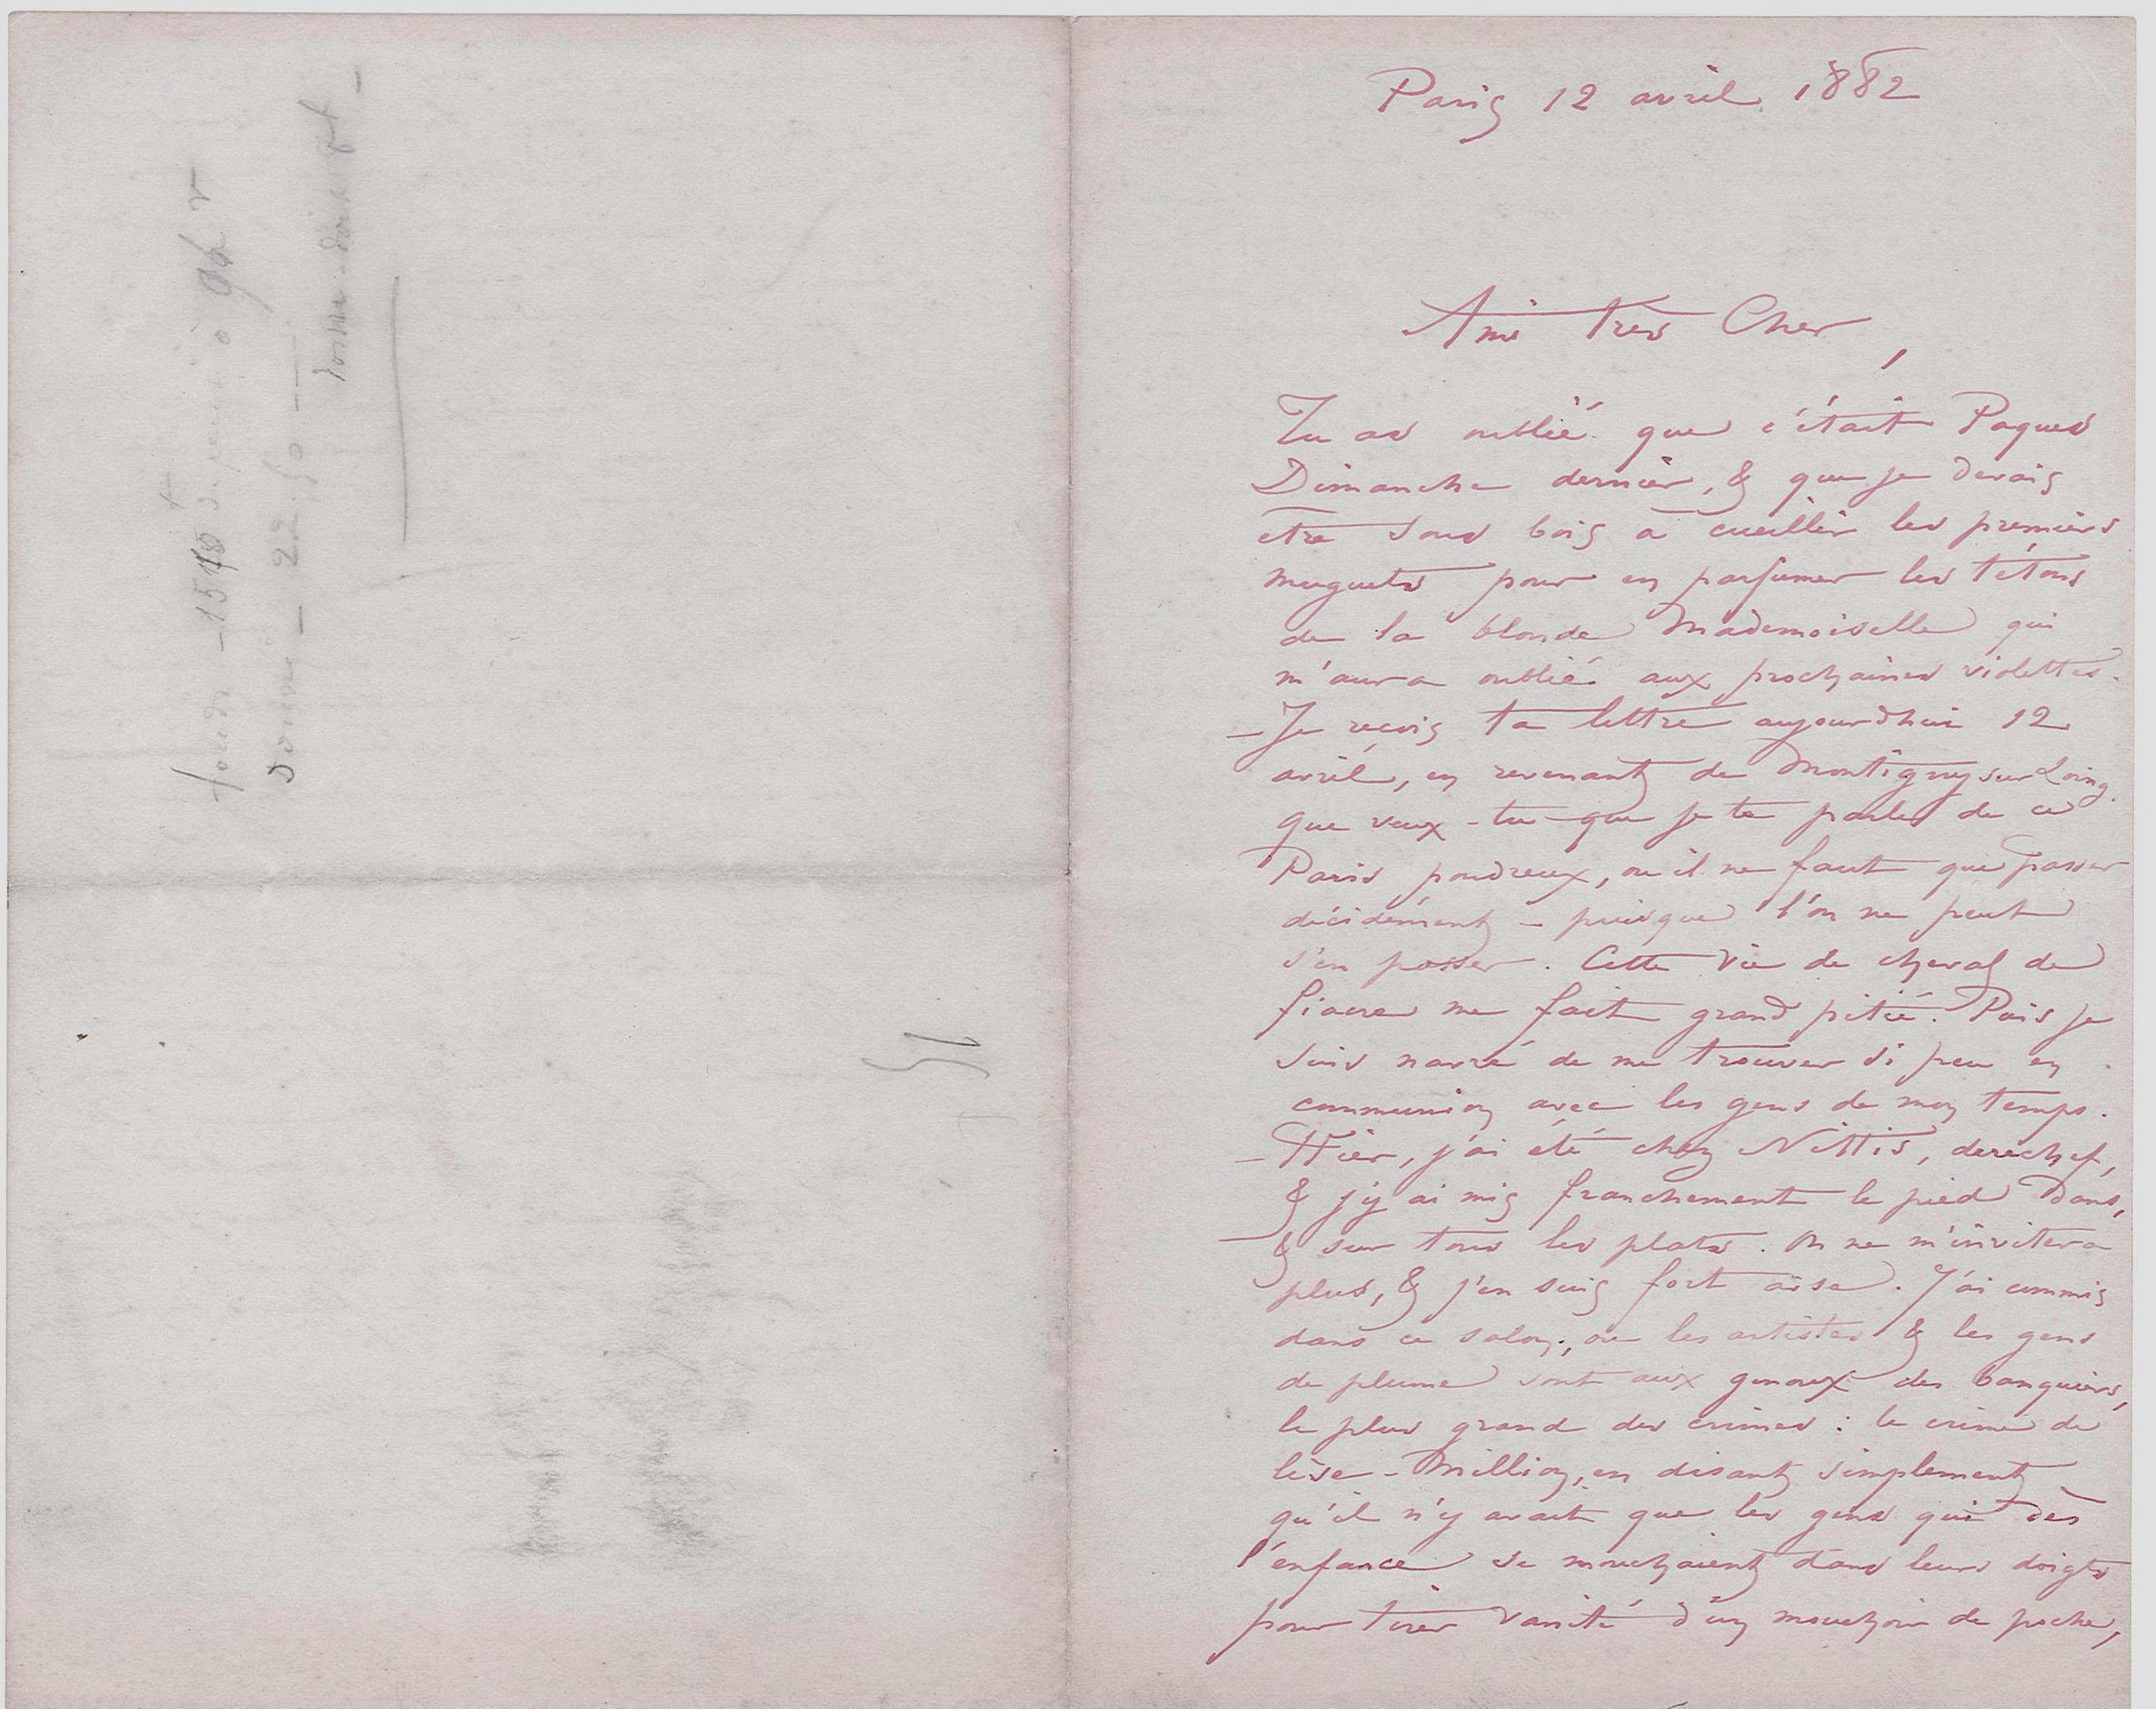 Paris 12 avril 1882
Ami très Cher,
Tu as oublié que c'était Paques
Dimanche dernier, & que je devais
être sous bois à cueillir les premiers
muguets pour en parfumer les tétons
de la blonde Mademoiselle qui
m'aura oublié aux prochaines violettes.
– Je reçois ta lettre aujourdhui 12
avril, en revenant de Montigny sur Loing.
que veux-tu que je te parle de ce
Paris poudreux, où il ne faut que passer
décidément – puisque l'on ne peut
s'en passer. Cette vie de cheval de
fiacre me fait grand pitié. Puis je
suis navré de me trouver si peu en
communion avec les gens de mon temps.
– Hier, j'ai été chez Nittis, derechef,
& j'y ai mis franchement le pied dans,
– & sur tous les plats. On ne m'invitera
plus, & j'en suis fort aise. J'ai commis
dans ce salon, où les artistes & les gens
de plume sont aux genoux des banquiers,
le plus grand des crimes : le crime de
lèse-Million, en disant simplement
qu'il n'y avait que les gens qui dès
l'enfance se mouchaient dans leurs doigts
pour tirer vanité d'un mouchoir de poche,